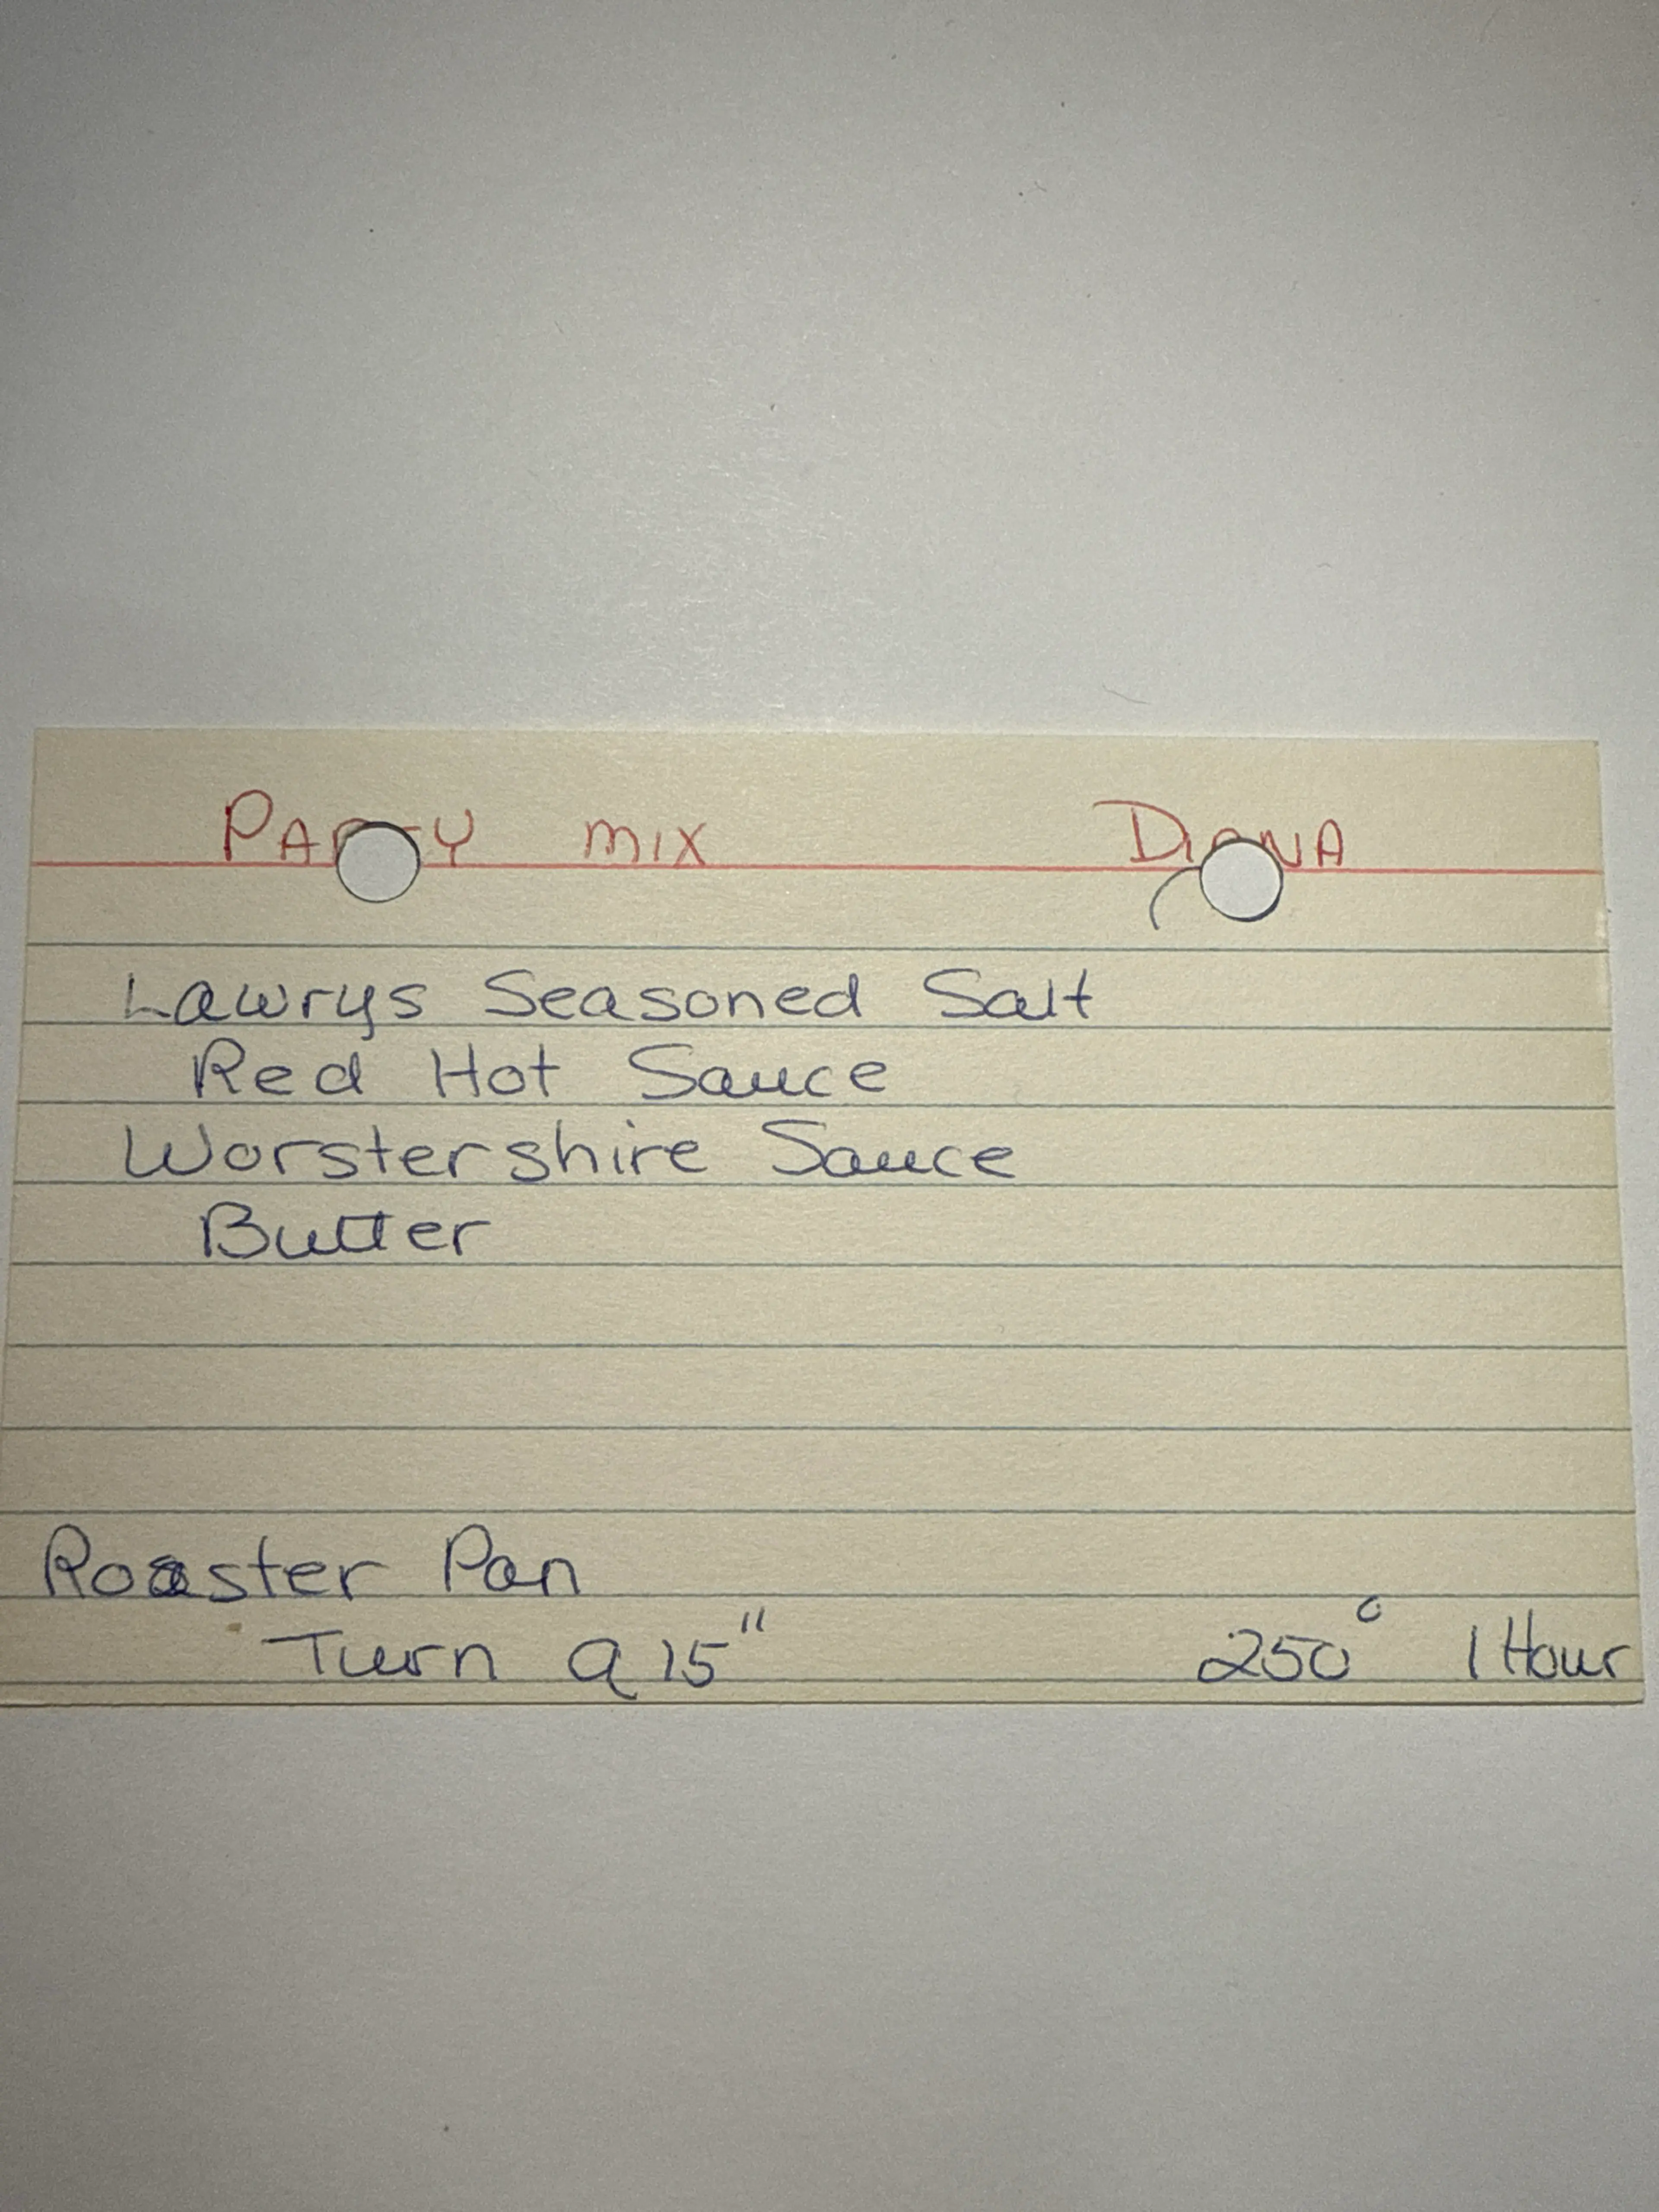 PARTY MIX DIANA
Lawrys Seasoned Salt
Red Hot Sauce
Worstershire Sauce
Butter
Roaster Pan
Turn q 15" 250° 1 Hour